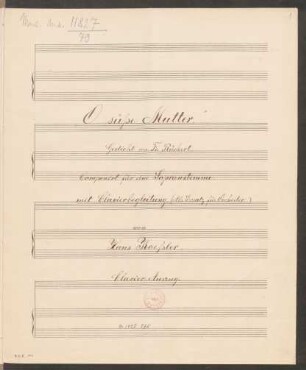 Mus. ms. 11827
79
O süße Mutter
Gedicht von Fr. Rückert
Componirt für eine Sopranstimme
mit Clavierbegleitung
von
Hans Koessler
Clavier-Auszug